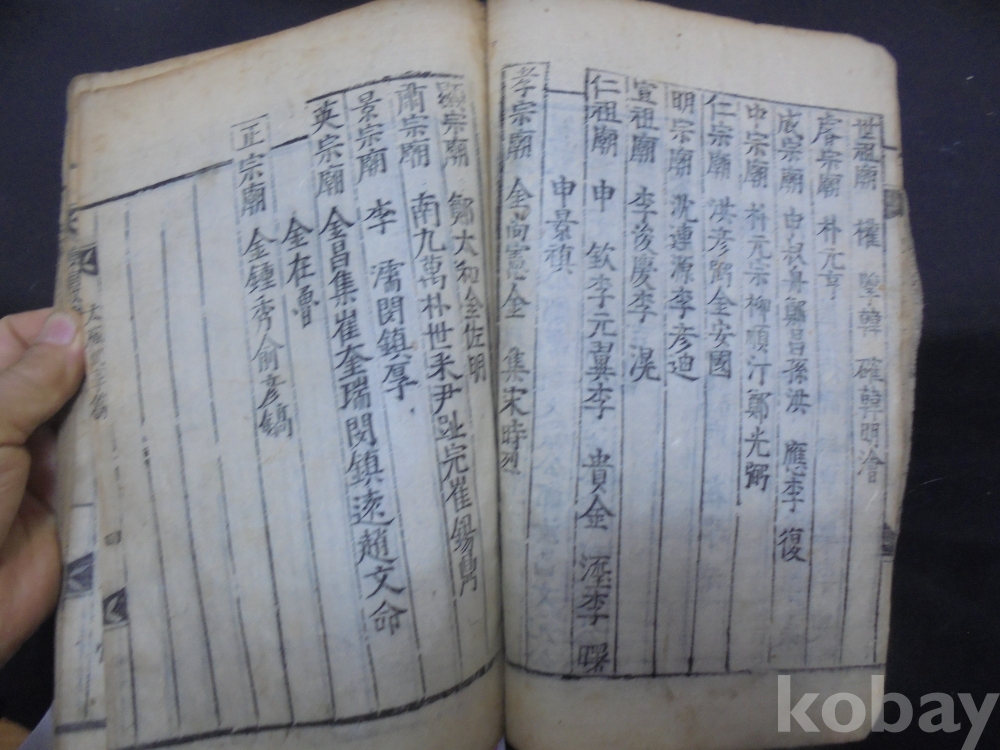 世祖廟 權 擥韓 確韓明澮
睿宗廟 朴元亨
成宗廟 申叔舟鄭昌孫洪 應李 復
中宗廟 朴元宗柳順汀鄭光弼
仁宗廟 洪彦弼金安國
明宗廟 沈連源李彦迪
宣祖廟 李浚慶李 滉
仁祖廟 申 欽李元翼李 貴金 瑬李 曙
申景禛
孝宗廟 金尚憲金 集宋時烈
顯宗廟 鄭太和金佐明
肅宗廟 南九萬朴世采尹趾完崔錫鼎
景宗廟 李 濡閔鎮厚
英宗廟 金昌集崔奎瑞閔鎮遠趙文命
金在魯
正宗廟 金鍾秀俞彦鎬
kobay